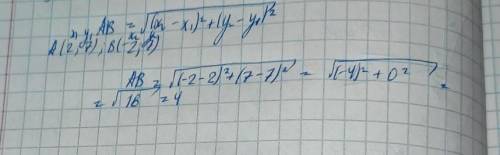 AB = √(x₂ - x₁)² + (y₂ - y₁)²
x₁ y₁ x₂ y₂
A(2;7); B(-2;7)
AB = √(-2-2)² + (7-7)² = √(-4)² + 0² =
= √16 = 4